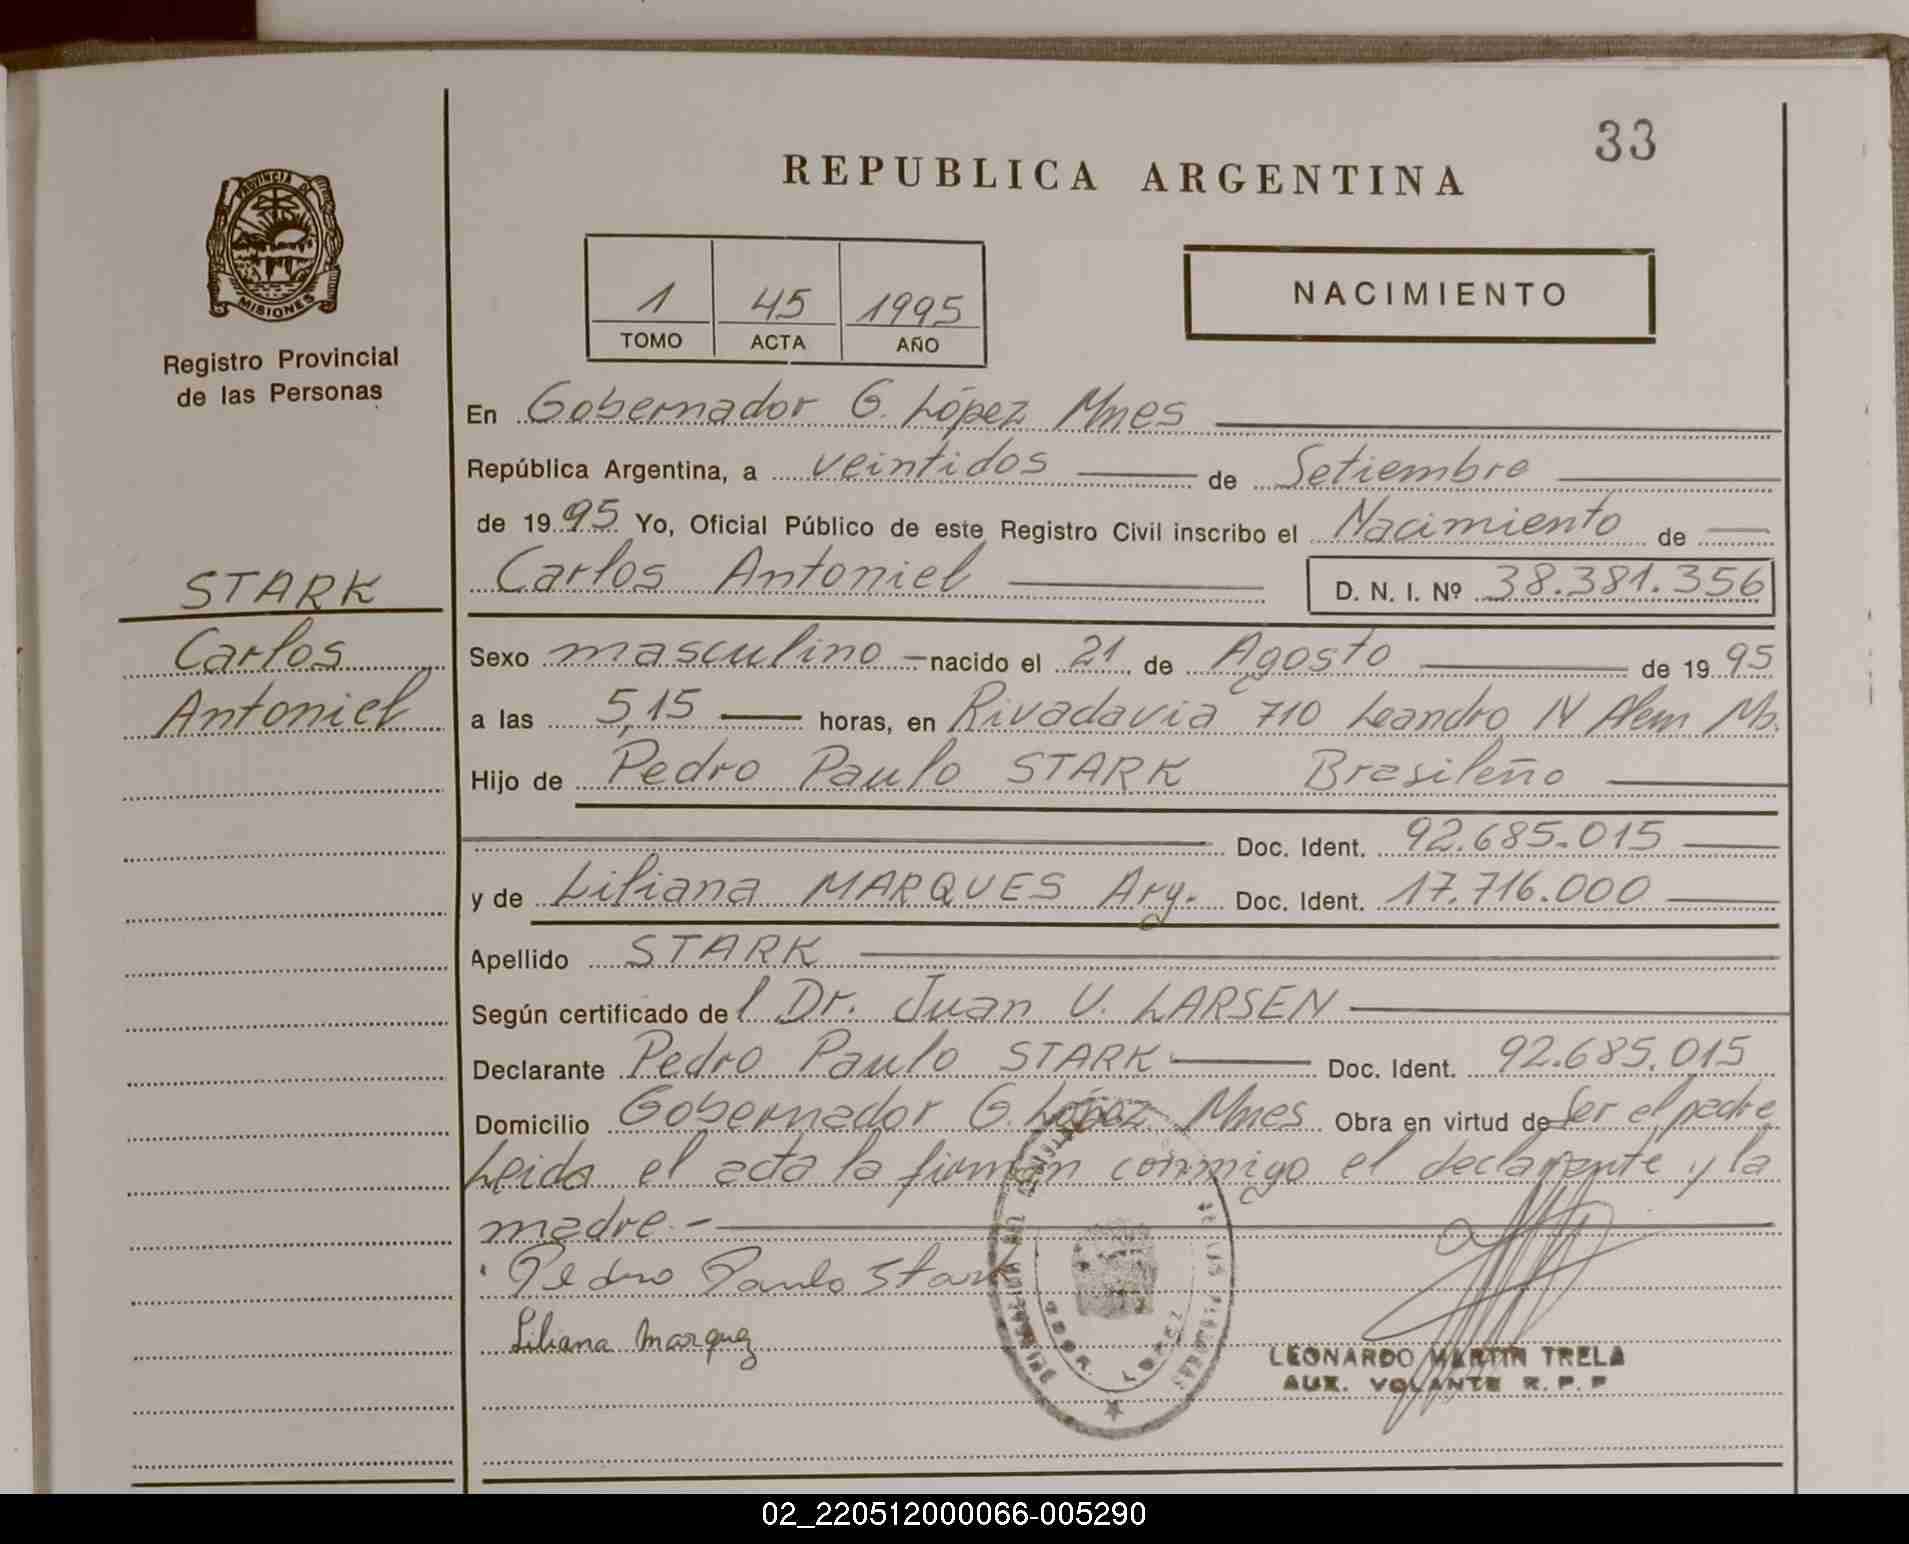 33
REPUBLICA ARGENTINA
PROVINCIA DE
MISIONES
1 45 1995
TOMO ACTA AÑO
NACIMIENTO
Registro Provincial
de las Personas
STARK
Carlos
Antoniel
En Gobernador G. López Mnes
República Argentina, a veintidos de Setiembre
de 1995 Yo, Oficial Público de este Registro Civil inscribo el Nacimiento de
Carlos Antoniel D. N. I. Nº 38.381.356
Sexo masculino - nacido el 21 de Agosto de 1995
a las 5,15 horas, en Rivadavia 710 Leandro N Alem Mb.
Hijo de Pedro Paulo STARK Brasileño
Doc. Ident. 92.685.015
y de Liliana MARQUES Arg. Doc. Ident. 17.716.000
Apellido STARK
Según certificado del Dr. Juan U. LARSEN
Declarante Pedro Paulo STARK Doc. Ident. 92.685.015
Domicilio Gobernador G. López Mnes Obra en virtud de Ser el padre
Leida el acta la firman conmigo el declarante y la
madre.-
Pedro Paulo Stark
Liliana Marquez
LEONARDO MARTIN TRELA
AUX. VOLANTE R. P. P
02_220512000066-005290